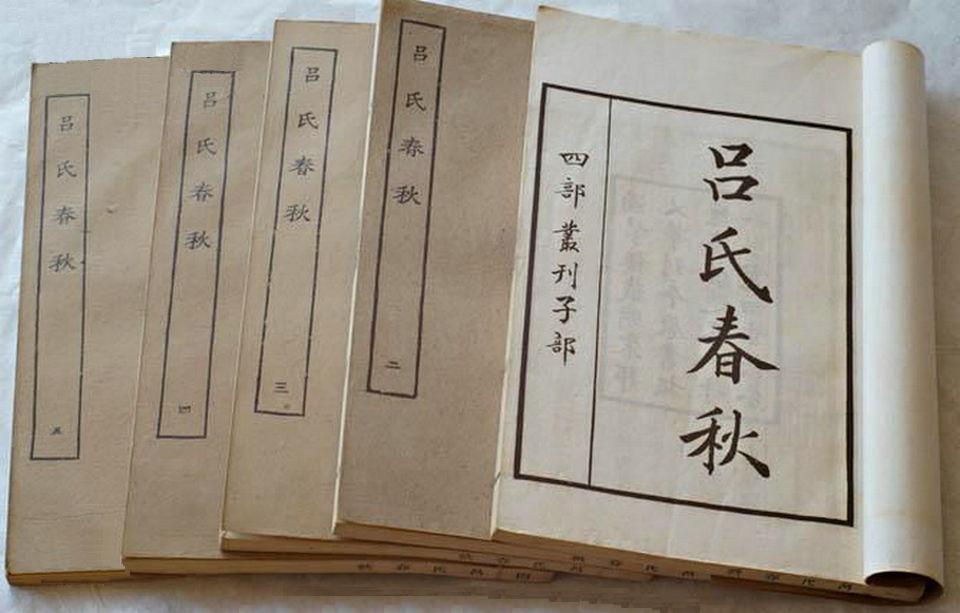 吕氏春秋
四部叢刊子部
吕氏春秋
二
吕氏春秋
三
吕氏春秋
四
吕氏春秋
五